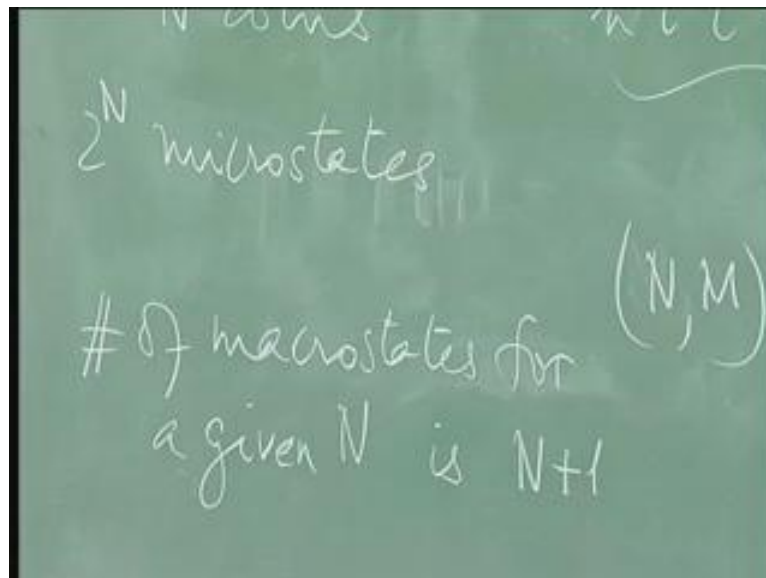 N coins
2^N microstates
(N, M)
# of macrostates for
a given N is N+1